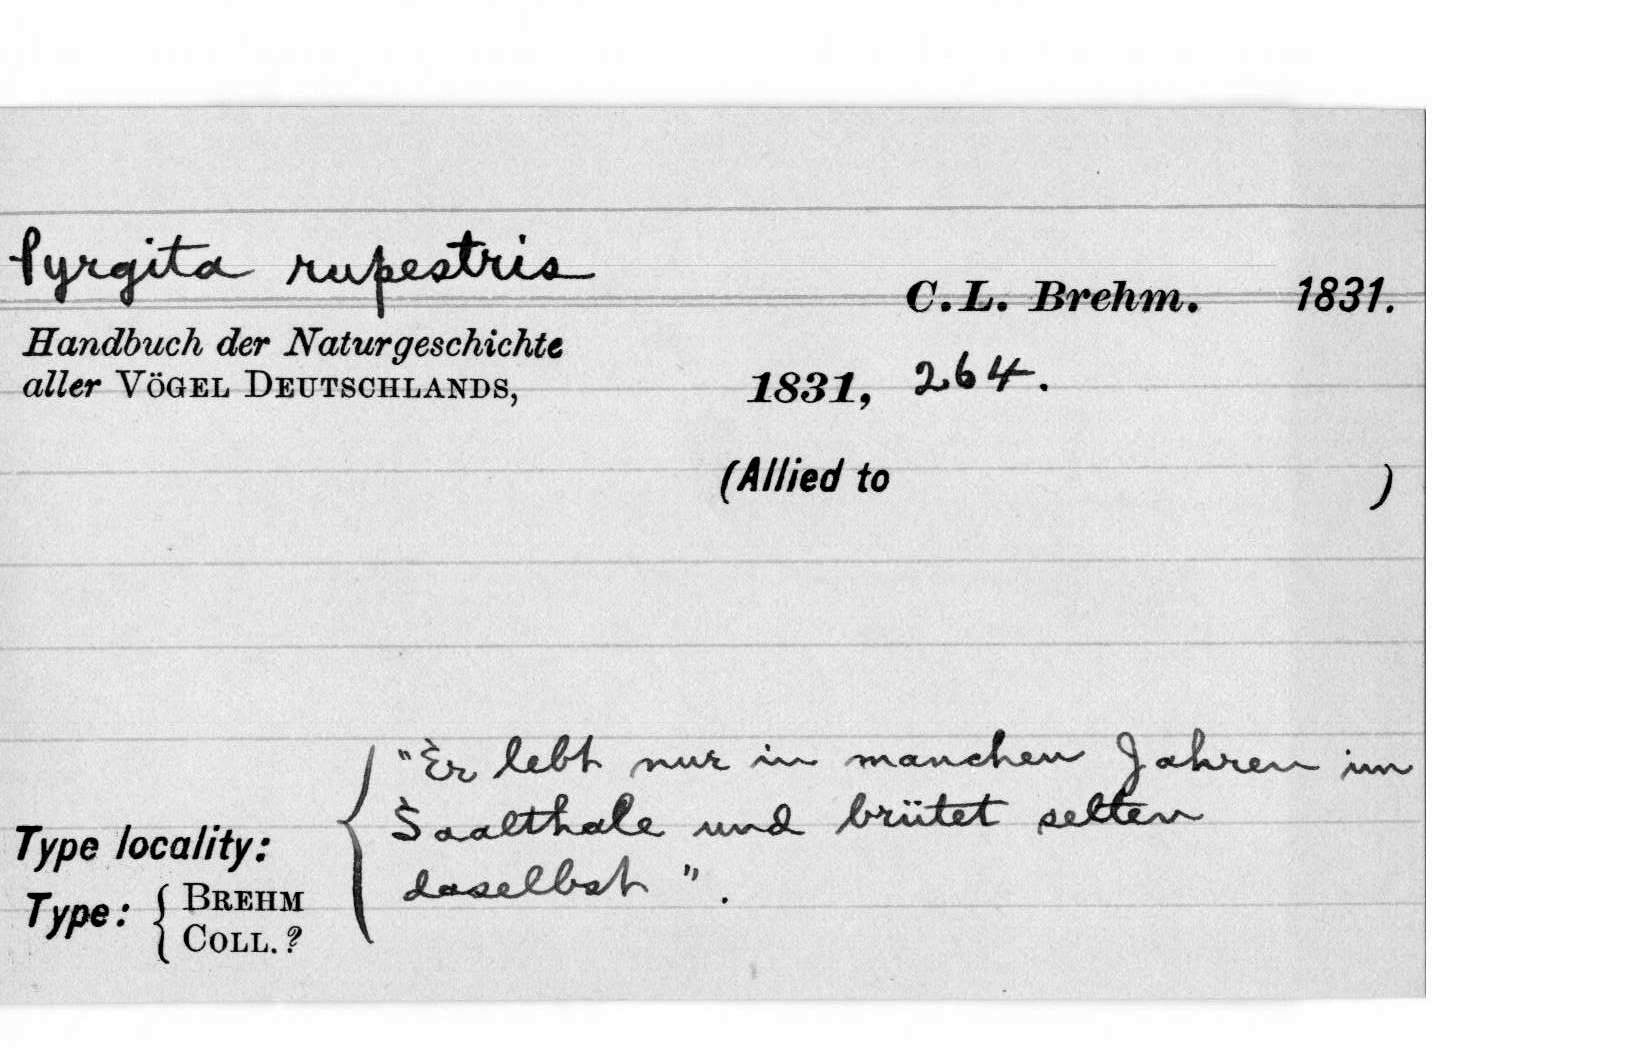 Pyrgita rupestris
C. L. Brehm. 1831.
Handbuch der Naturgeschichte
aller VÖGEL DEUTSCHLANDS, 1831, 264.
(Allied to )
"Er lebt nur in manchen Jahren im
Saalthale und brütet selten
daselbst".
Type locality:
Type: { BREHM
COLL. ?